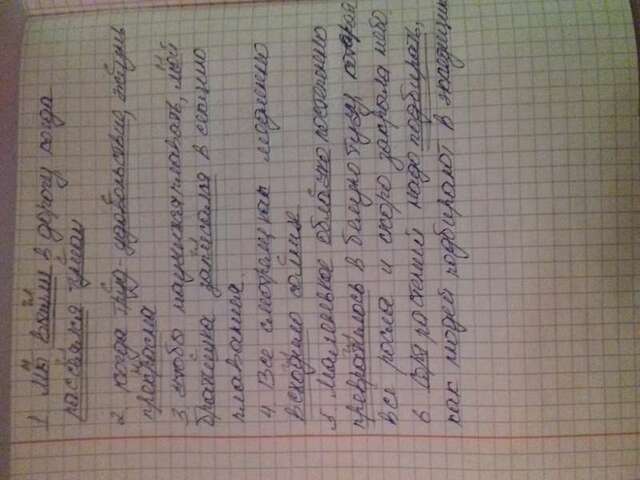 1. Мы вышли в дорогу когда
рассеялся туман
2. Когда труд - удовольствие, жизнь
прекрасна
3. Чтобы научится плавать, мой
братишка записался в секцию
плавания.
4. Все смотрели как медленно
всходило солнце.
5. Маленькое облачко постепенно
превратилось в белую тучу, которая
все росла и скоро закрыла небо
6 Сорт растений надо подбирать,
как людей подбирают в экспедицию